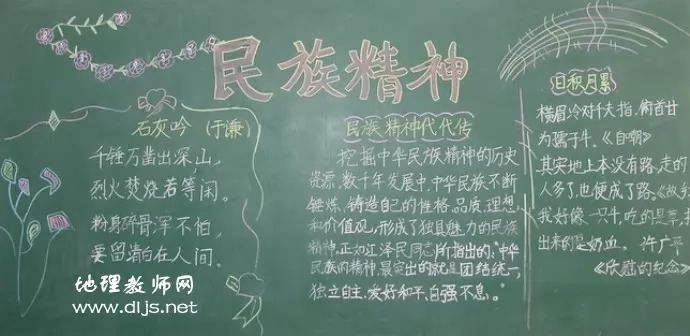 民族精神
石灰吟 (于谦)
千锤万凿出深山，
烈火焚烧若等闲。
粉身碎骨浑不怕，
要留清白在人间。
民族精神代代传
挖掘中华民族精神的历史
资源，数千年发展中，中华民族不断
锤炼、铸造自己的性格、品质、理想
和价值观，形成了独具魅力的民族
精神，正如江泽民同志所指出的："中华
民族的精神，最突出的就是团结统一、
独立自主、爱好和平、自强不息。"
日积月累
横眉冷对千夫指，俯首甘
为孺子牛。《自嘲》
其实地上本没有路，走的
人多了，也便成了路。《故乡
我好像一只牛，吃的是草，挤
出来的是奶血。 许广平
《欣慰的纪念》
地理教师网
www.dljs.net